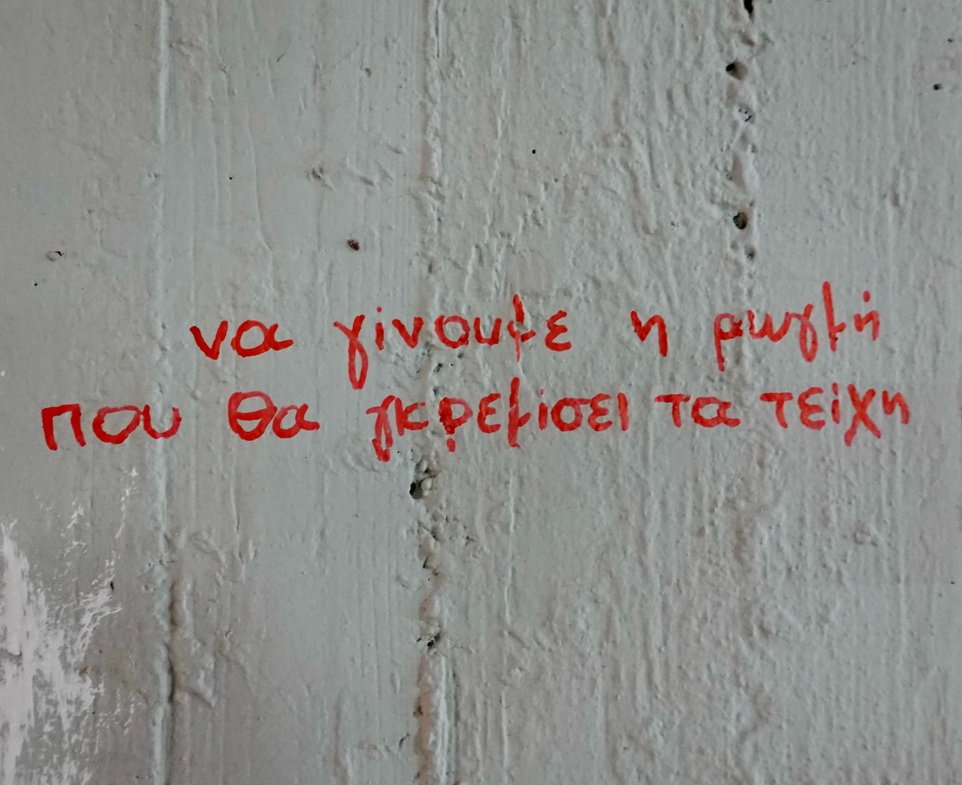 να γίνουμε η ρωγμή
που θα γκρεμίσει τα τείχη